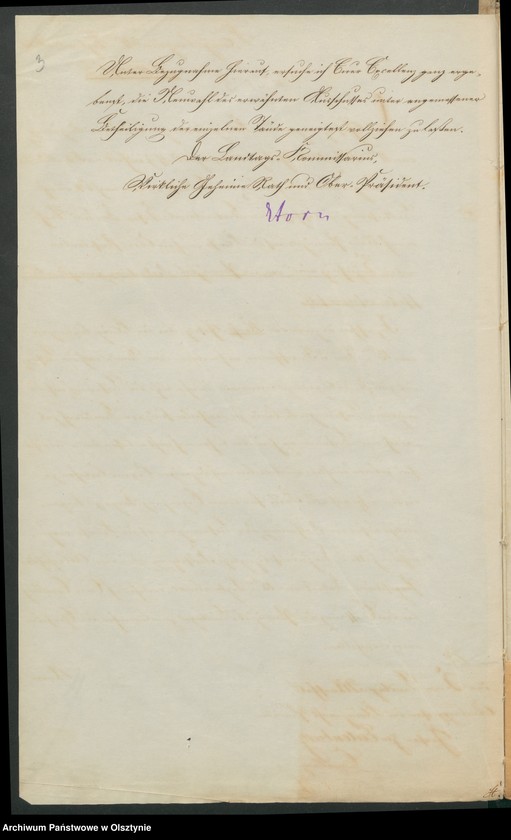 3
Unter Bezugnahme hierauf, ersuche ich Euer Excellenz ganz erge-
benst, die Neuwahl des erwähnten Ausschusses unter angemessener
Betheiligung der einzelnen Stände geneigtest vollziehen zu lassen.
Der Landtags-Kommissarius,
Wirkliche Geheime Rath und Ober-Präsident.
Horn
Archiwum Państwowe w Olsztynie